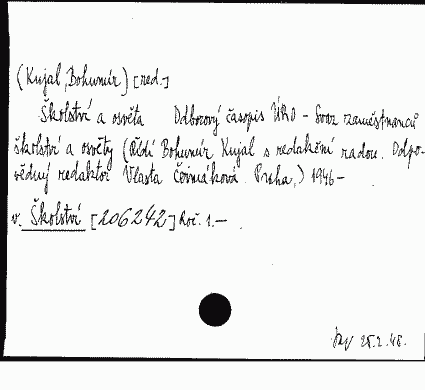 (Kujal, Bohumír) [red.]
Školství a osvěta Odborový časopis ÚRO - Svaz zaměstnanců
školství a osvěty (Řídí Bohumír Kujal s redakční radou. Odpo-
vědný redaktor Vlasta Čermáková. Praha,) 1946-
v. Školství [206242] Roč. 1.-
25.2.48.